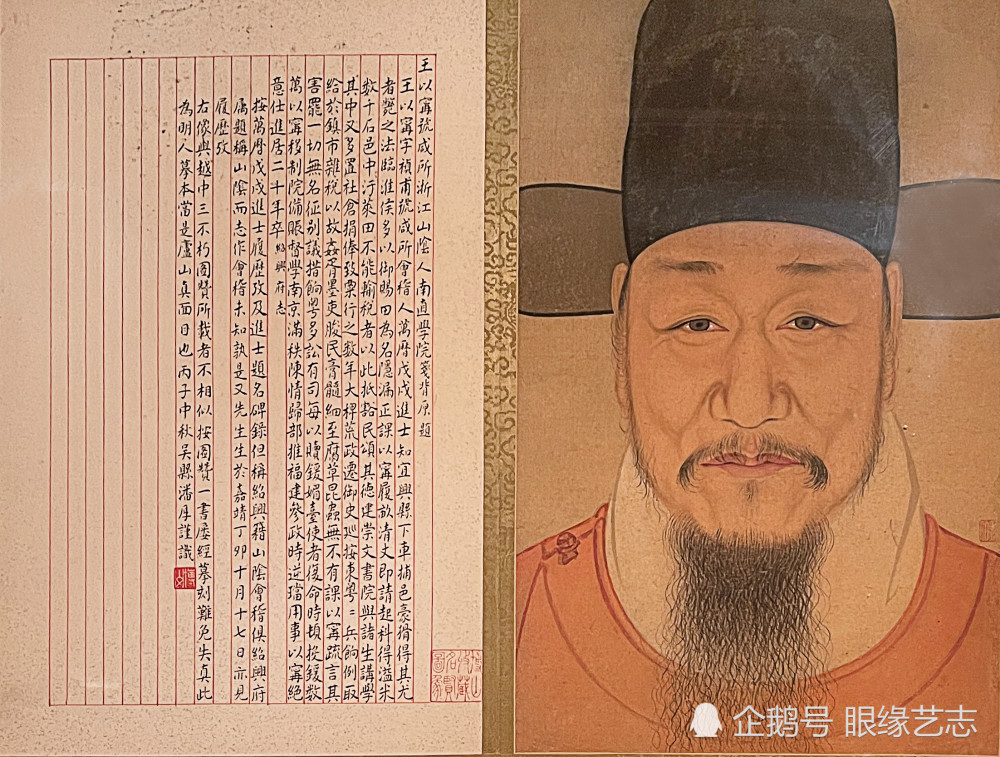 王以寗號咸所浙江山陰人南直學院箋背原題
王以寗字禎甫號咸所會稽人萬曆戊戌進士知宜興縣下車捕邑豪猾得其尤
者斃之法臨淮侯多以御賜田為名隱漏正課以寗履畝清丈即請起科得溢米
數千石邑中汙萊田不能輸稅者以此抵豁民頌其德建崇文書院與諸生講學
其中又多置社倉捐俸致粟行之数年大稱荒政遷御史廵按東粵二兵餉例取
給於鎮市雜稅以故姦胥墨吏朘民膏髓細至腐草昆蟲無不有課以寗疏言其
害罷一切無名征別議措餉粤多訟有司每以贖鍰媚臺使者復命時頓投鍰数
萬以寗移制院備賑督學南京滿秩陳情歸部推福建參政時逆璫用事以寗絕
意仕進居二十年卒紹興府志
按萬曆戊戌進士履歷攷及進士題名碑錄但稱紹興籍山陰會稽俱紹興府
屬題稱山陰而志作會稽未知孰是又先生生於嘉靖丁卯十月十七日亦見
履歷攷
右像與越中三不朽圖贊所載者不相似按圖贊一書屡經摹刻難免失真此
為明人摹本當是廬山真面目也丙子中秋吳縣潘厚謹識
企鹅号 眼缘艺志